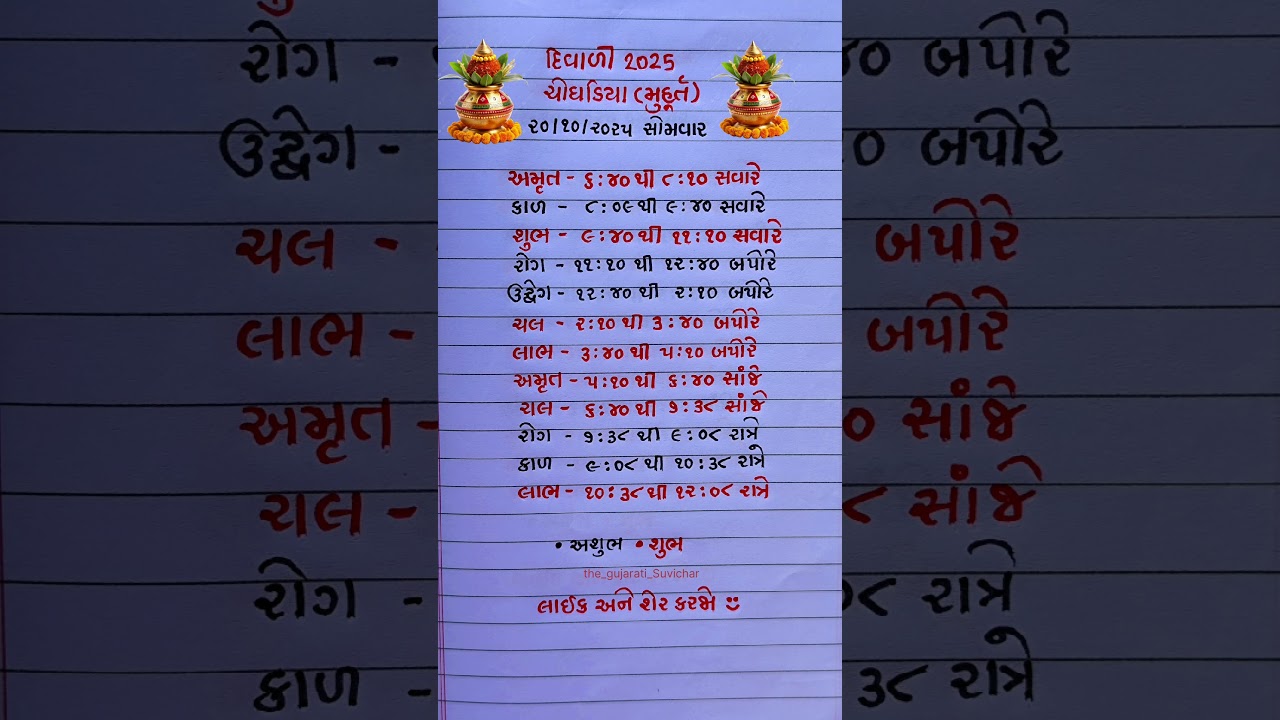 દિવાળી 2025
ચોઘડિયા (મુહૂર્ત)
૨૦/૧૦/૨૦૨૫ સોમવાર
અમૃત - ૬:૪૦ થી ૮:૧૦ સવારે
કાળ - ૮:૦૯ થી ૯:૪૦ સવારે
શુભ - ૯:૪૦ થી ૧૧:૧૦ સવારે
રોગ - ૧૧:૧૦ થી ૧૨:૪૦ બપોરે
ઉદ્વેગ - ૧૨:૪૦ થી ૨:૧૦ બપોરે
ચલ - ૨:૧૦ થી ૩:૪૦ બપોરે
લાભ - ૩:૪૦ થી ૫:૧૦ બપોરે
અમૃત - ૫:૧૦ થી ૬:૪૦ સાંજે
ચલ - ૬:૪૦ થી ૭:૩૮ સાંજે
રોગ - ૭:૩૮ થી ૯:૦૮ રાત્રે
કાળ - ૯:૦૮ થી ૧૦:૩૮ રાત્રે
લાભ - ૧૦:૩૮ થી ૧૨:૦૮ રાત્રે
• અશુભ • શુભ
the_gujarati_Suvichar
લાઈક અને શેર કરજો